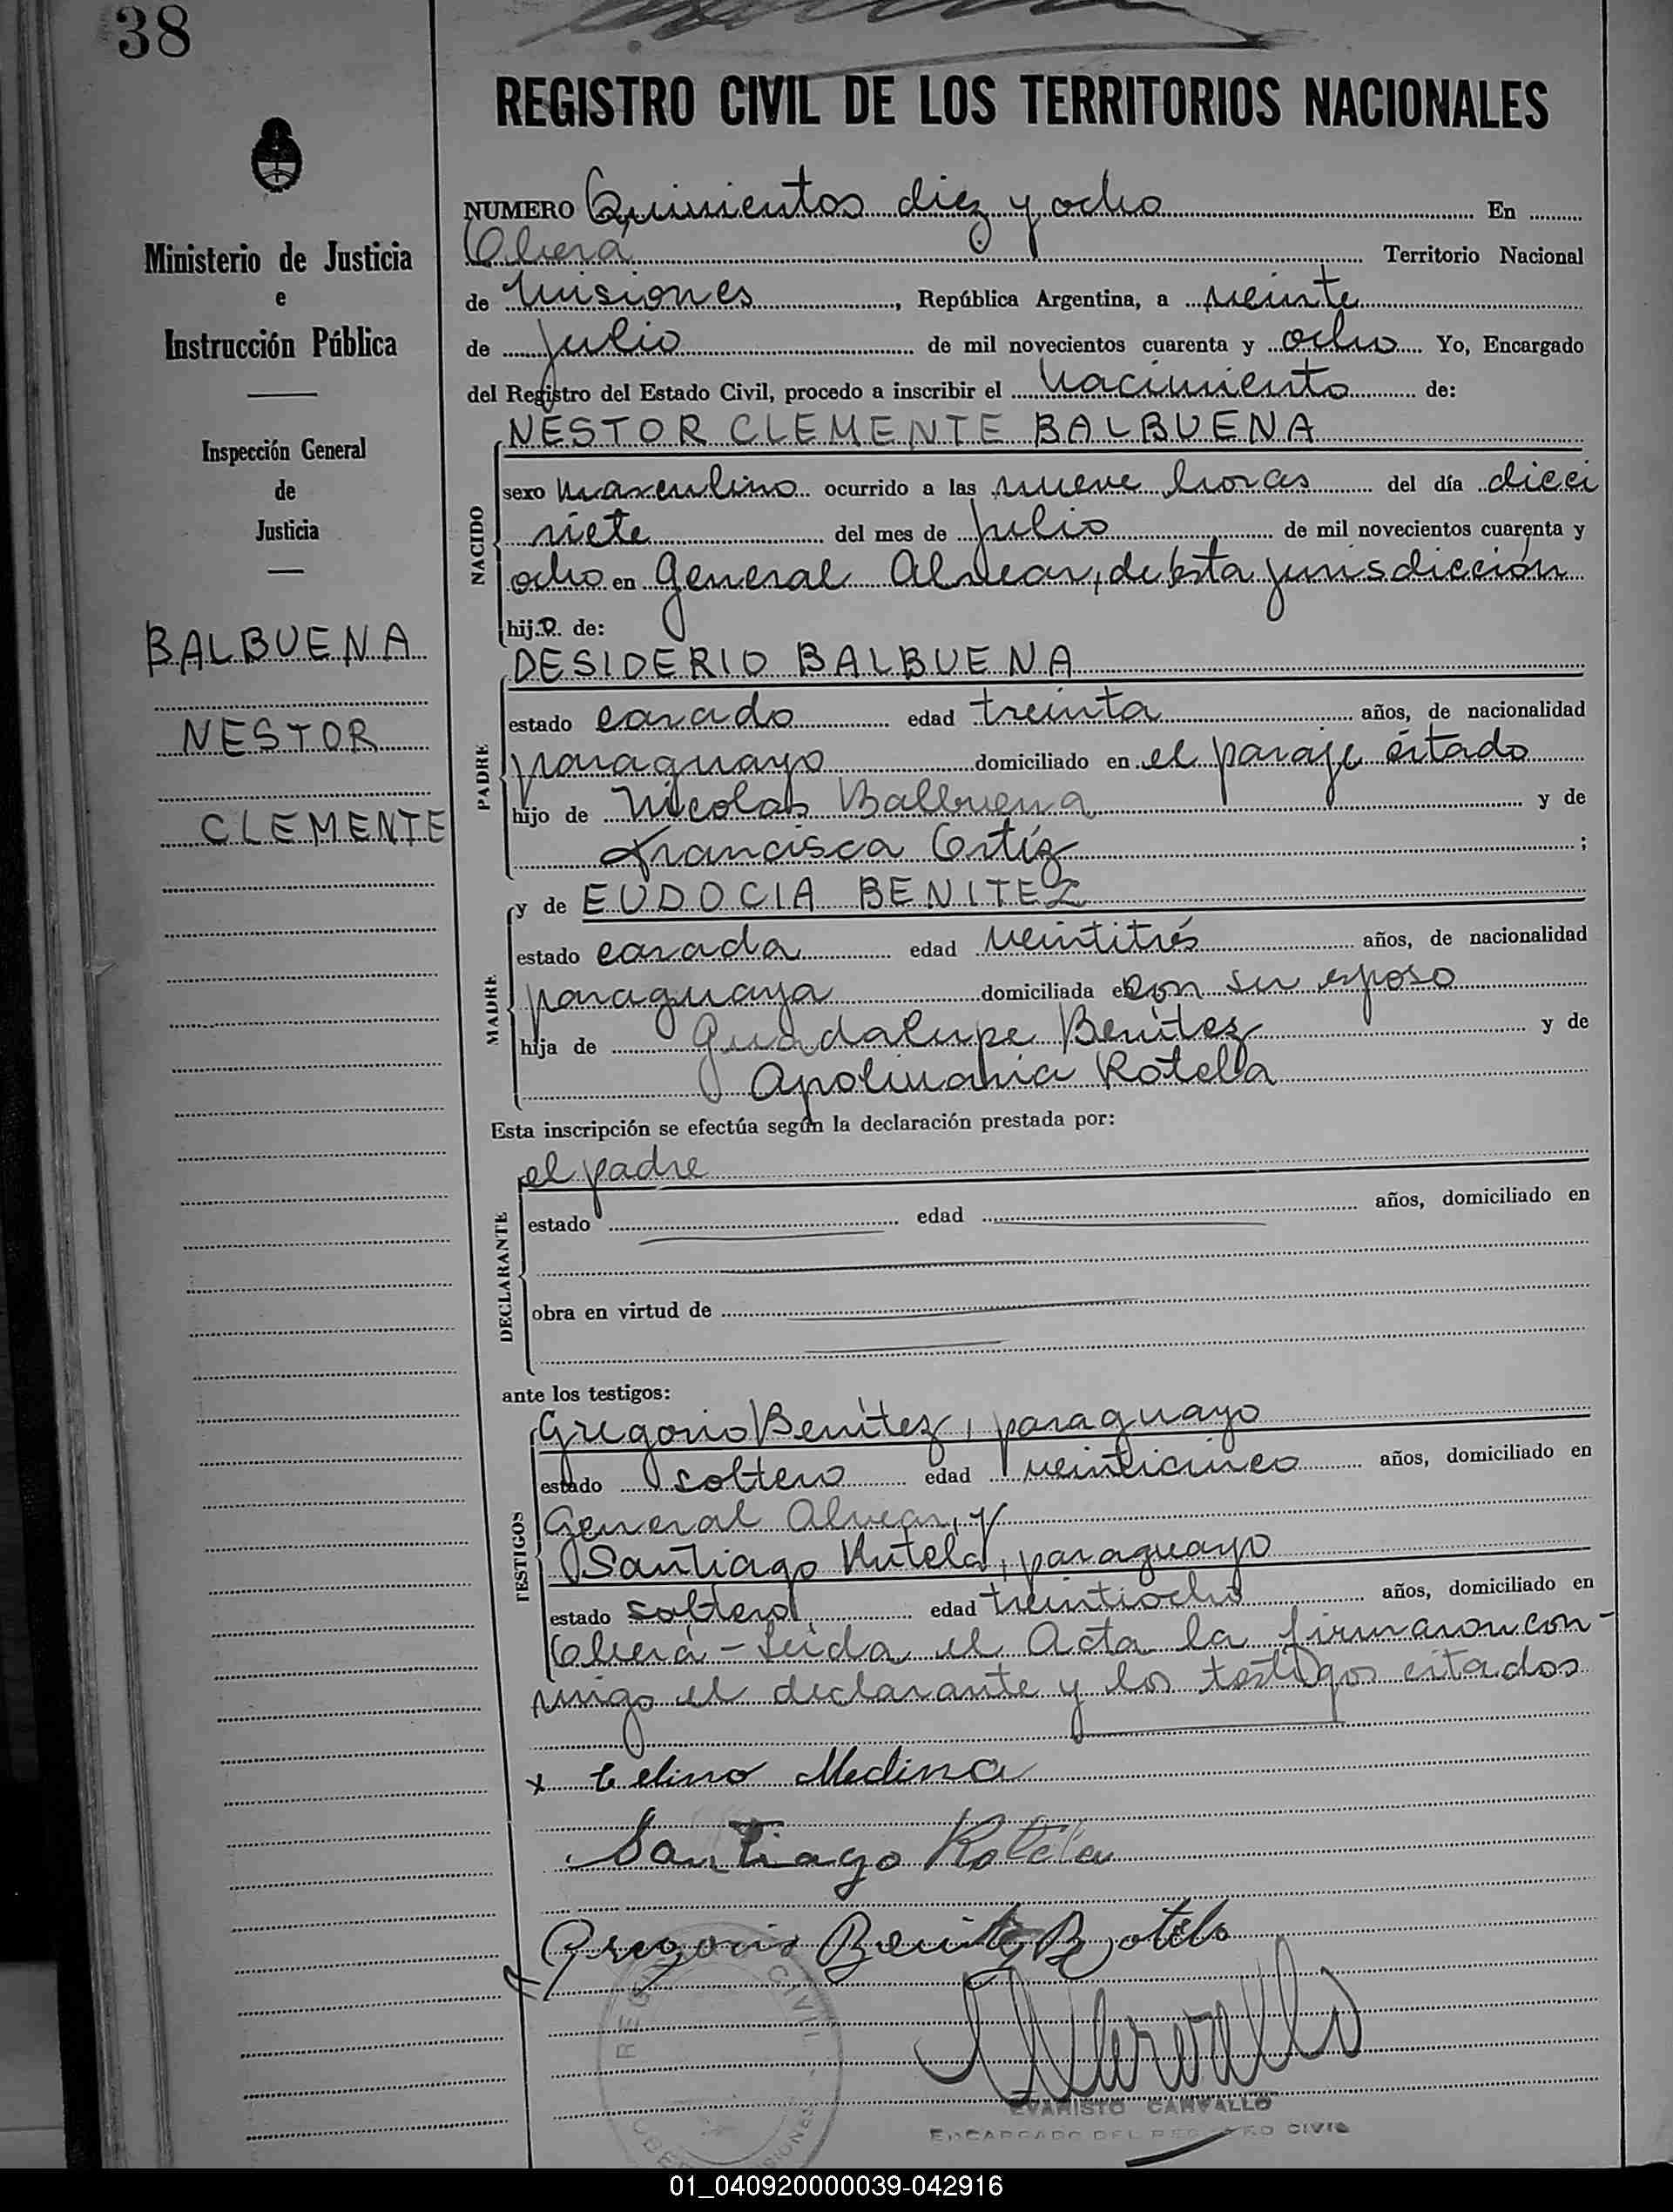 38
REGISTRO CIVIL DE LOS TERRITORIOS NACIONALES
Ministerio de Justicia
e
Instrucción Pública
Inspección General
de
Justicia
BALBUENA
NESTOR
CLEMENTE
NUMERO Quinientos diez y ocho En
Oberá Territorio Nacional
de Misiones, República Argentina, a veinte
de julio de mil novecientos cuarenta y ocho Yo, Encargado
del Registro del Estado Civil, procedo a inscribir el Nacimiento de:
NESTOR CLEMENTE BALBUENA
NACIDO
sexo masculino ocurrido a las nueve horas del día dieci
siete del mes de julio de mil novecientos cuarenta y
ocho en General Alvear, de ésta jurisdicción
hijo de:
DESIDERIO BALBUENA
PADRE
estado casado edad treinta años, de nacionalidad
paraguayo domiciliado en el paraje citado
hijo de Nicolas Balbuena y de
Francisca Ortíz;
y de EUDOCIA BENITEZ
MADRE
estado casada edad veintitrés años, de nacionalidad
paraguaya domiciliada en con su esposo
hija de Guadalupe Benítez y de
Apolinaria Rotela
Esta inscripción se efectúa según la declaración prestada por:
el padre
DECLARANTE
estado edad años, domiciliado en
obra en virtud de
ante los testigos:
TESTIGOS
Gregorio Benítez, paraguayo
estado soltero edad veinticinco años, domiciliado en
General Alvear, y
Santiago Rutela, paraguayo
estado soltero edad treintiocho años, domiciliado en
Oberá - Leída el Acta la firmaron con-
migo el declarante y los testigos citados
x Celino Medina
Santiago Rotela
Gregorio Benitez Rotela
REG CIVIL
EVARISTO CARVALLO
ENCARGADO DEL REGISTRO CIVIL
01_040920000039-042916